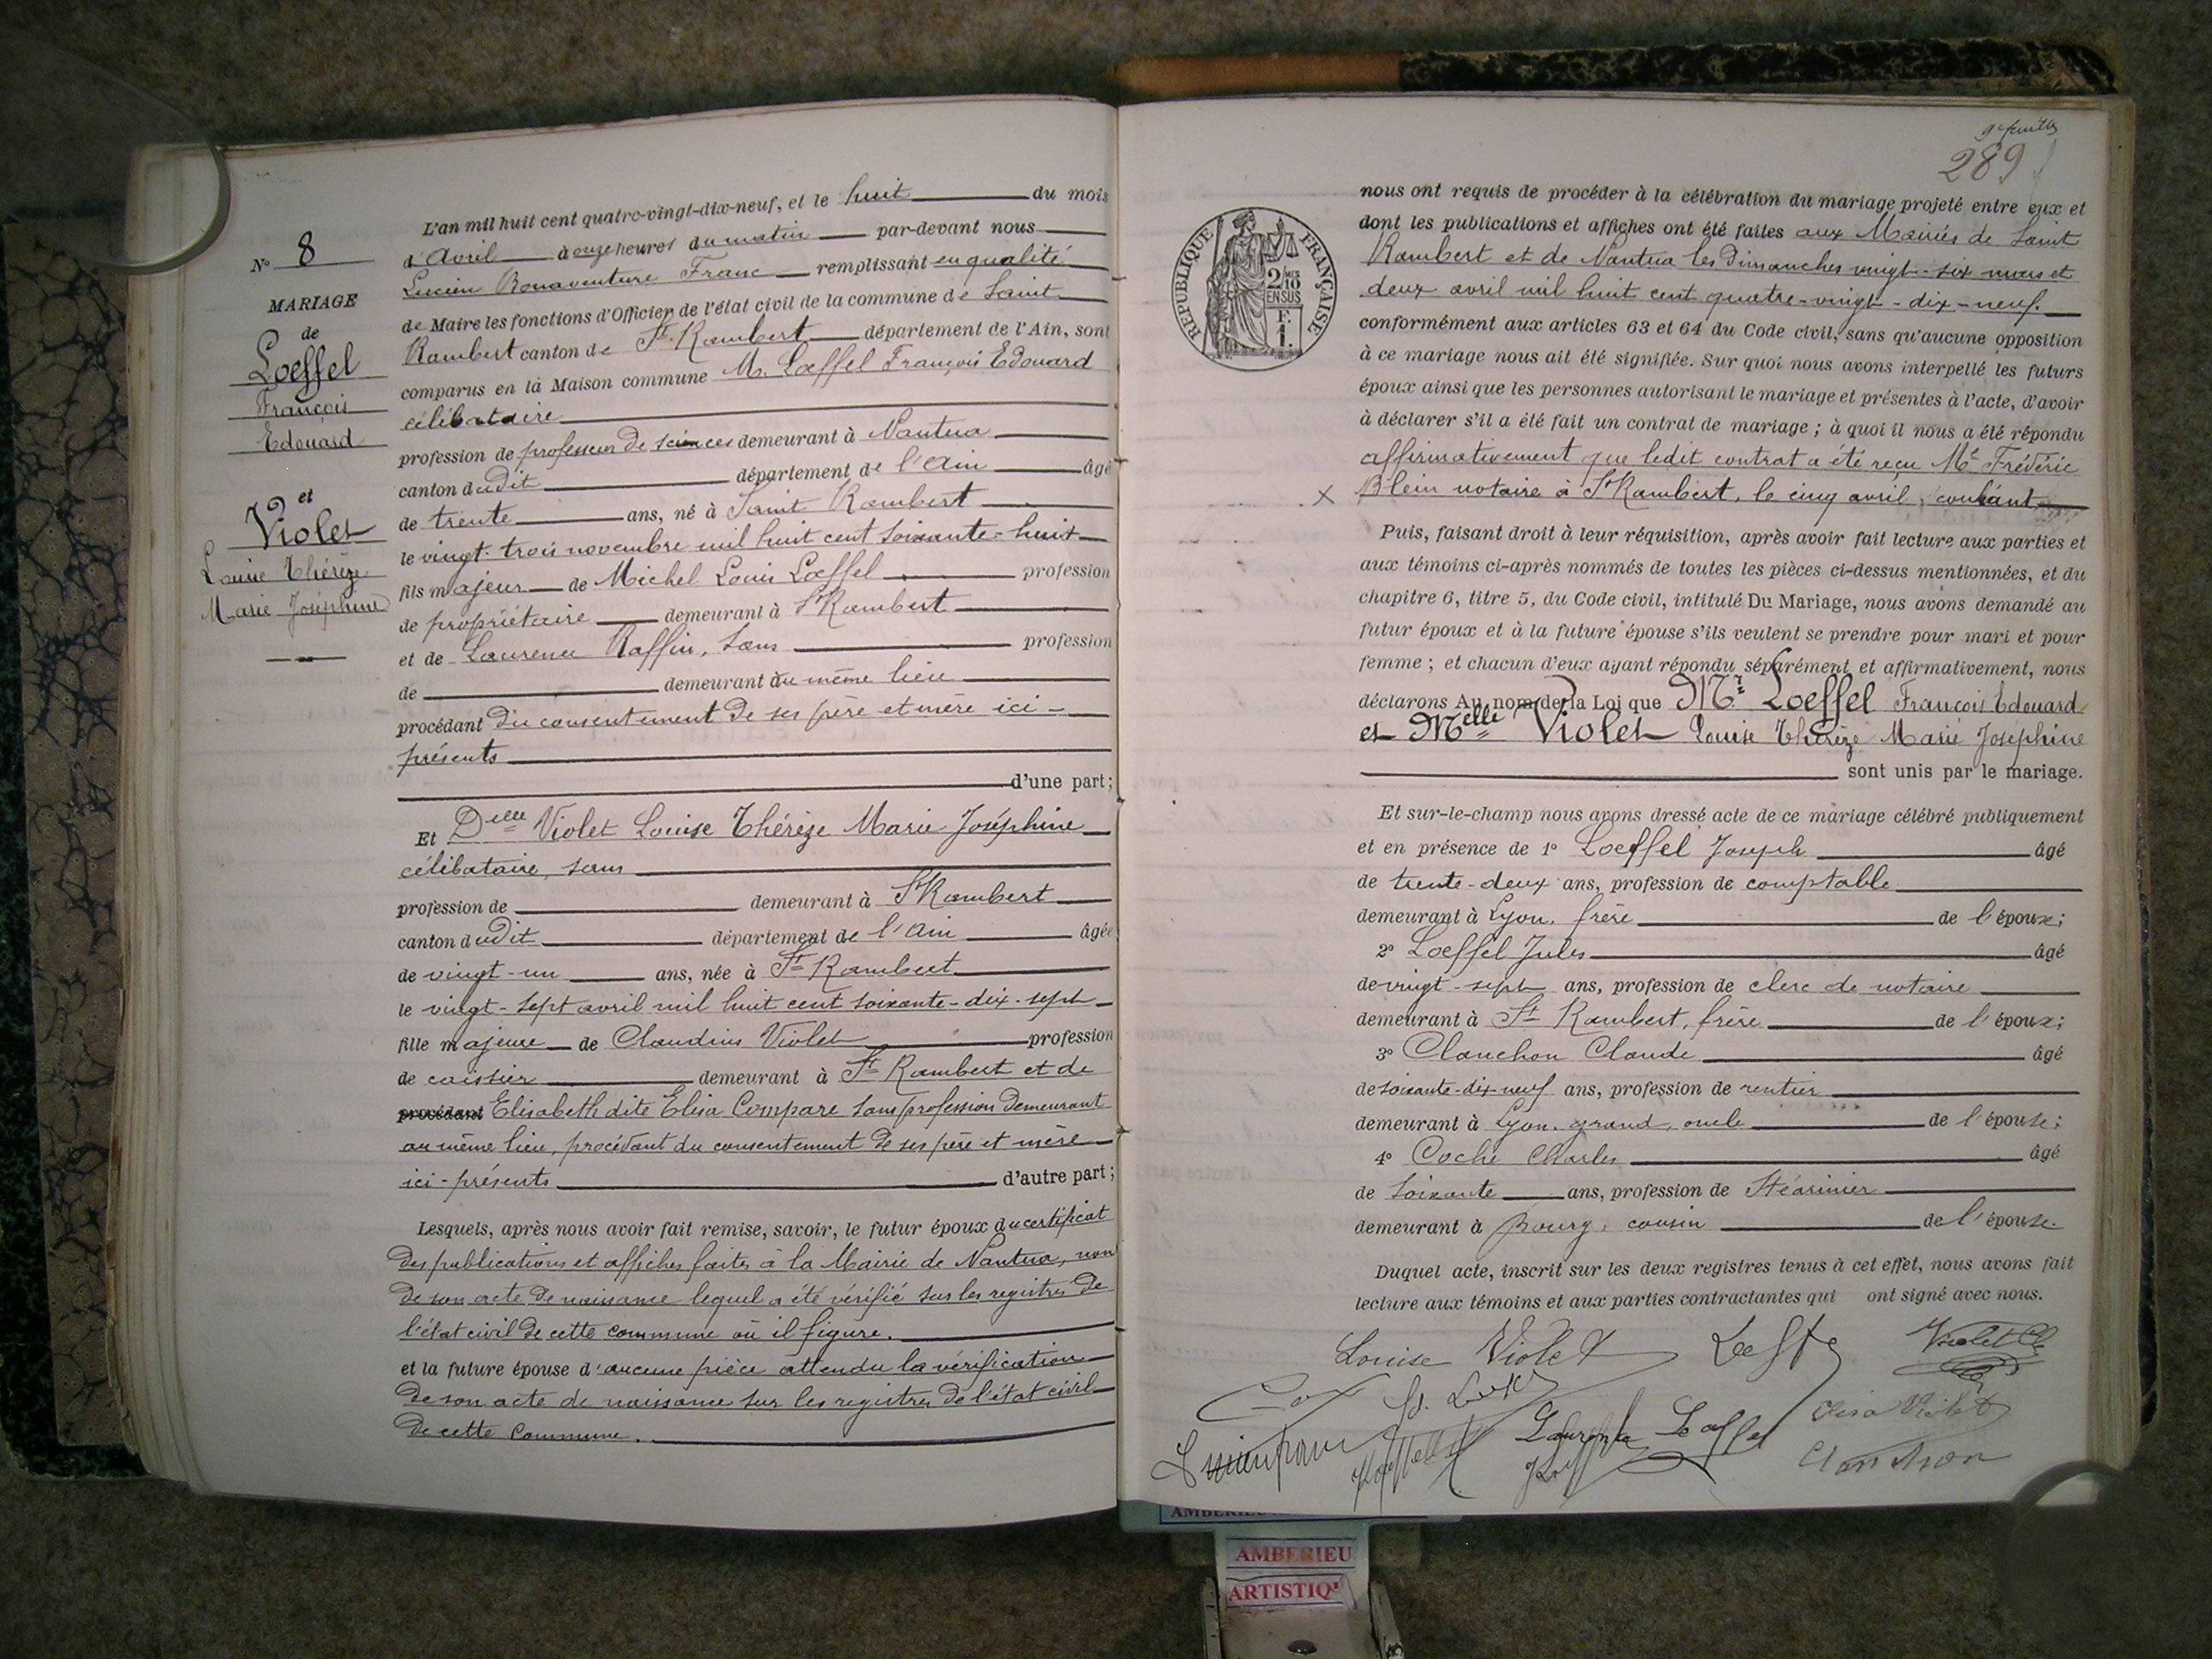 N° 8
MARIAGE
de
Loeffel
François
Edouard
et
Violet
Louise Thérèze
Marie Joséphine
L'an mil huit cent quatre-vingt-dix-neuf, et le huit du mois
d'Avril à onze heures du matin par-devant nous
Lucien Bonaventure Franc remplissant en qualité
de Maire les fonctions d'Officier de l'état civil de la commune de Saint
Rambert canton de St Rambert département de l'Ain, sont
comparus en la Maison commune M. Loeffel François Edouard
célibataire
profession de professeur de sciences demeurant à Nantua
canton dudit département de l'Ain âgé
de trente ans, né à Saint Rambert
le vingt-trois novembre mil huit cent soixante-huit
fils majeur de Michel Louis Loeffel profession
de propriétaire demeurant à St Rambert
et de Laurence Raffin, sans profession
de demeurant au même lieu
procédant du consentement de ses père et mère ici-
présents
d'une part;
Et Delle Violet Louise Thérèze Marie Joséphine
célibataire, sans
profession de demeurant à St Rambert
canton dudit département de l'Ain âgée
de vingt-un ans, née à St Rambert
le vingt-sept avril mil huit cent soixante-dix-sept
fille majeure de Claudius Violet profession
de caissier demeurant à St Rambert et de
procédant Elisabeth dite Elisa Compare sans profession demeurant
au même lieu, procédant du consentement de ses père et mère
ici-présents d'autre part;
Lesquels, après nous avoir fait remise, savoir, le futur époux du certificat
des publications et affiches faites à la Mairie de Nantua, non
de son acte de naissance lequel a été vérifié sur les registres de
l'état civil de cette commune où il figure.
et la future épouse d'aucune pièce attendu la vérification
de son acte de naissance sur les registres de l'état civil
de cette Commune.
9e feuille
289
REPUBLIQUE FRANÇAISE
2/10
EN SUS
F.
1.
nous ont requis de procéder à la célébration du mariage projeté entre eux et
dont les publications et affiches ont été faites aux Mairies de Saint
Rambert et de Nantua les Dimanches vingt-six mars et
deux avril mil huit cent quatre-vingt-dix-neuf.
conformément aux articles 63 et 64 du Code civil, sans qu'aucune opposition
à ce mariage nous ait été signifiée. Sur quoi nous avons interpellé les futurs
époux ainsi que les personnes autorisant le mariage et présentes à l'acte, d'avoir
à déclarer s'il a été fait un contrat de mariage; à quoi il nous a été répondu
affirmativement que ledit contrat a été reçu Me Frédéric
x Blein notaire à St Rambert, le cinq avril, courant
Puis, faisant droit à leur réquisition, après avoir fait lecture aux parties et
aux témoins ci-après nommés de toutes les pièces ci-dessus mentionnées, et du
chapitre 6, titre 5, du Code civil, intitulé Du Mariage, nous avons demandé au
futur époux et à la future épouse s'ils veulent se prendre pour mari et pour
femme; et chacun d'eux ayant répondu séparément et affirmativement, nous
déclarons Au nom de la Loi que Mr Loeffel François Edouard
et Melle Violet Louise Thérèze Marie Joséphine
sont unis par le mariage.
Et sur-le-champ nous avons dressé acte de ce mariage célébré publiquement
et en présence de 1° Loeffel Joseph âgé
de trente-deux ans, profession de comptable
demeurant à Lyon, frère de l'époux;
2° Loeffel Jules âgé
de vingt-sept ans, profession de clerc de notaire
demeurant à St Rambert, frère de l'époux;
3° Clanchon Claude âgé
de soixante-dix-neuf ans, profession de rentier
demeurant à Lyon, grand, oncle de l'épouse;
4° Coche Charles âgé
de soixante ans, profession de Stéarinier
demeurant à Bourg, cousin de l'épouse.
Duquel acte, inscrit sur les deux registres tenus à cet effet, nous avons fait
lecture aux témoins et aux parties contractantes qui ont signé avec nous.
Louise Violet Violet Cl
Elisa Violet
Loeffel
Clanchon
AMBERIEU
ARTISTIQ